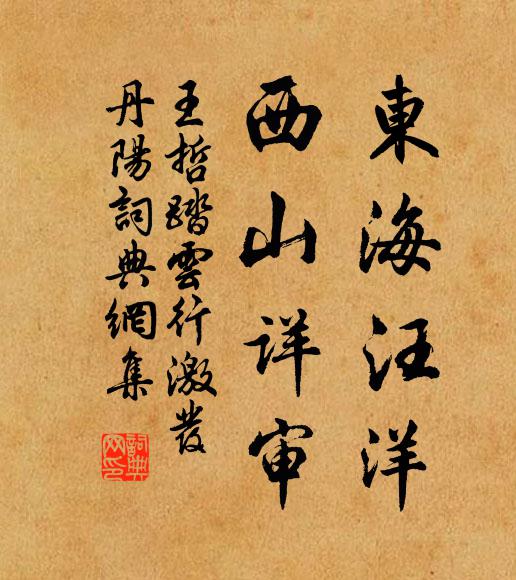 東海汪洋
西山详审
王哲踏雲行激發
丹陽詞典網集
詞典網印